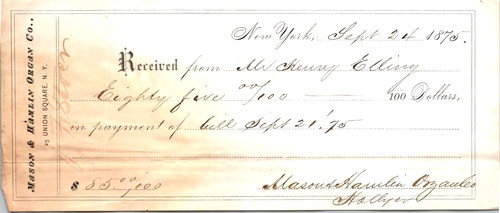 MASON & HAMLIN ORGAN CO.,
25 UNION SQUARE, N. Y.
New York, Sept 24 1875.
Received from Mr Henry Elling
Eighty five 00/100 — 100 Dollars,
in payment of bill Sept 21 '75
$ 85.00/100
Mason & Hamlin Organ Co